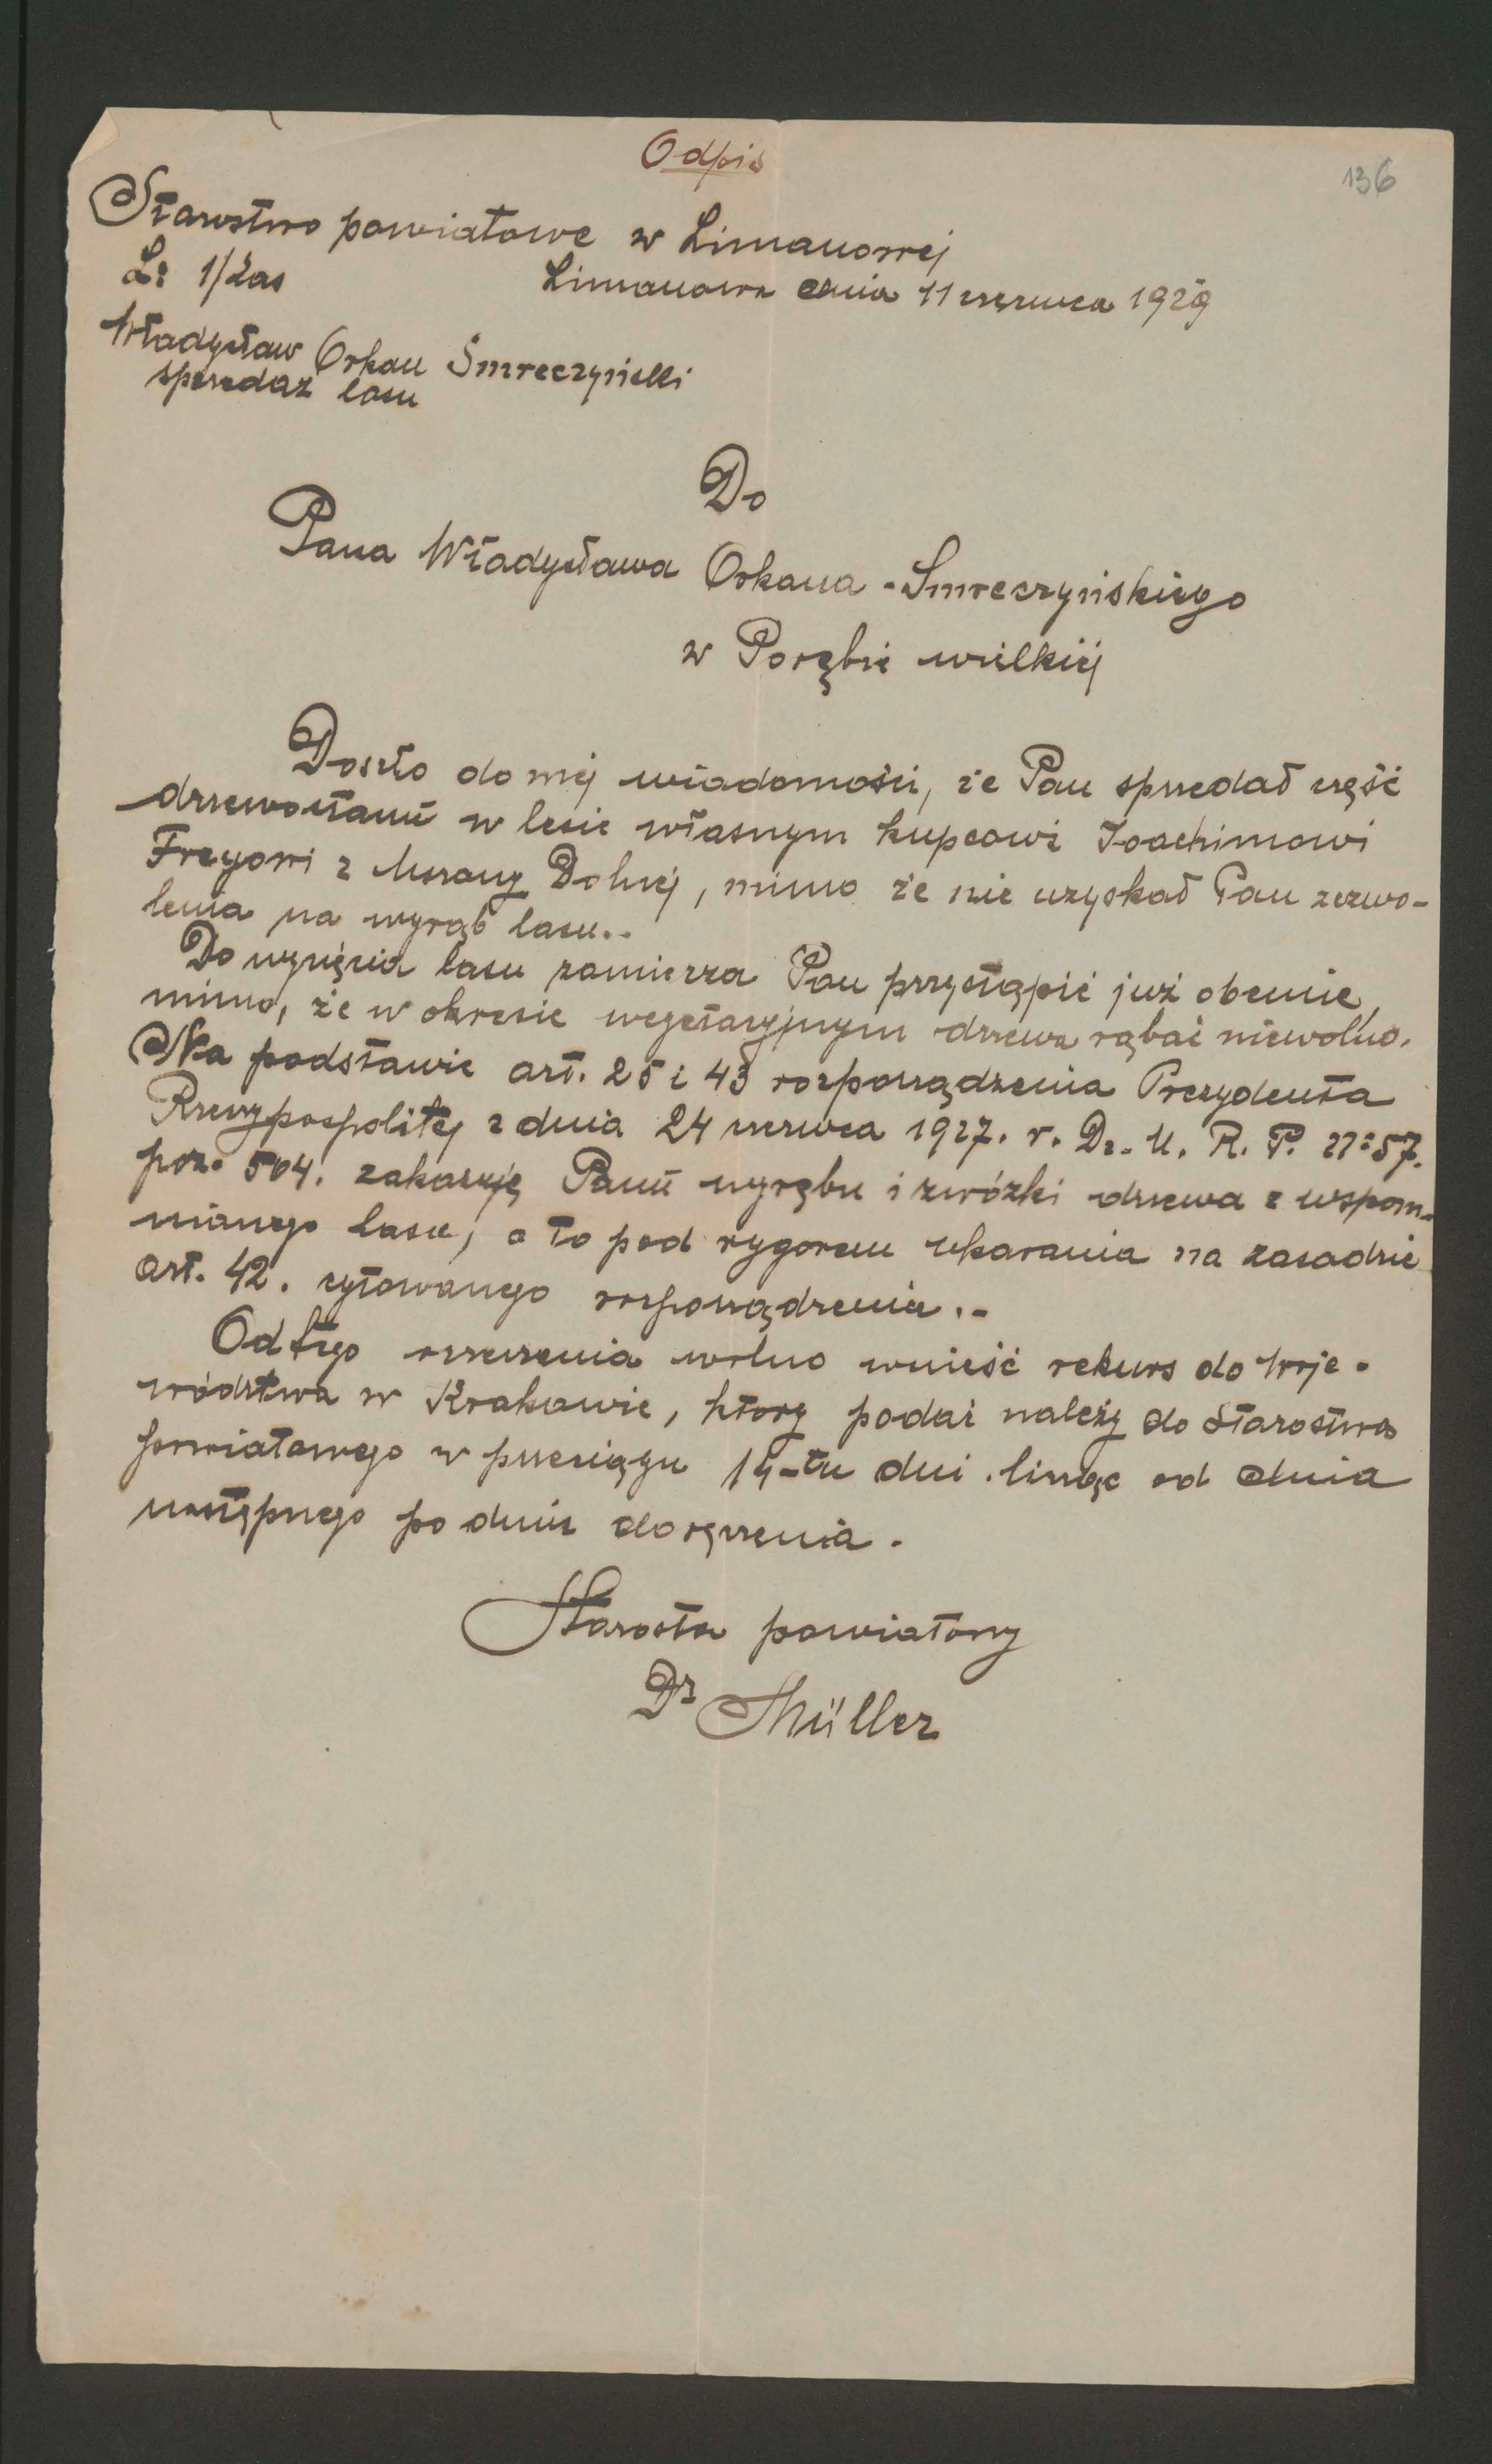 Odpis
136
Starostwo powiatowe w Limanowej
L: 1/Las
Limanowa dnia 11 czerwca 1929
Władysław Orkan Smreczyński
sprzedaż lasu
Do
Pana Władysława Orkana - Smreczyńskiego
w Porębie wielkiej
Doszło do mej wiadomości, że Pan sprzedał część
drzewostanu w lesie własnym kupcowi Joachimowi
z Mszany Dolnej, mimo że nie uzyskał Pan zezwo-
lenia na wyrąb lasu..
Do wycięcia lasu zamierza Pan przystąpić już obecnie,
mimo, że w okresie wegetacyjnym drzewa rąbać niewolno.
Na podstawie art. 25 i 43 rozporządzenia Prezydenta
Rzeczypospolitej z dnia 24 czerwca 1927. r. Dz. U. R. P. 57.
poz. 504. zakazuję Panu wyrębu i zwózki drzewa z wspom-
nianego lasu, a to pod rygorem ukarania na zasadzie
art. 42. cytowanego rozporządzenia.-
Od tego orzeczenia wolno wnieść rekurs do Woje-
wództwa w Krakowie, który podać należy do Starostwa
powiatowego w przeciągu 14-tu dni licząc od dnia
następnego po dniu doręczenia.
Starosta powiatowy
Dr Müller